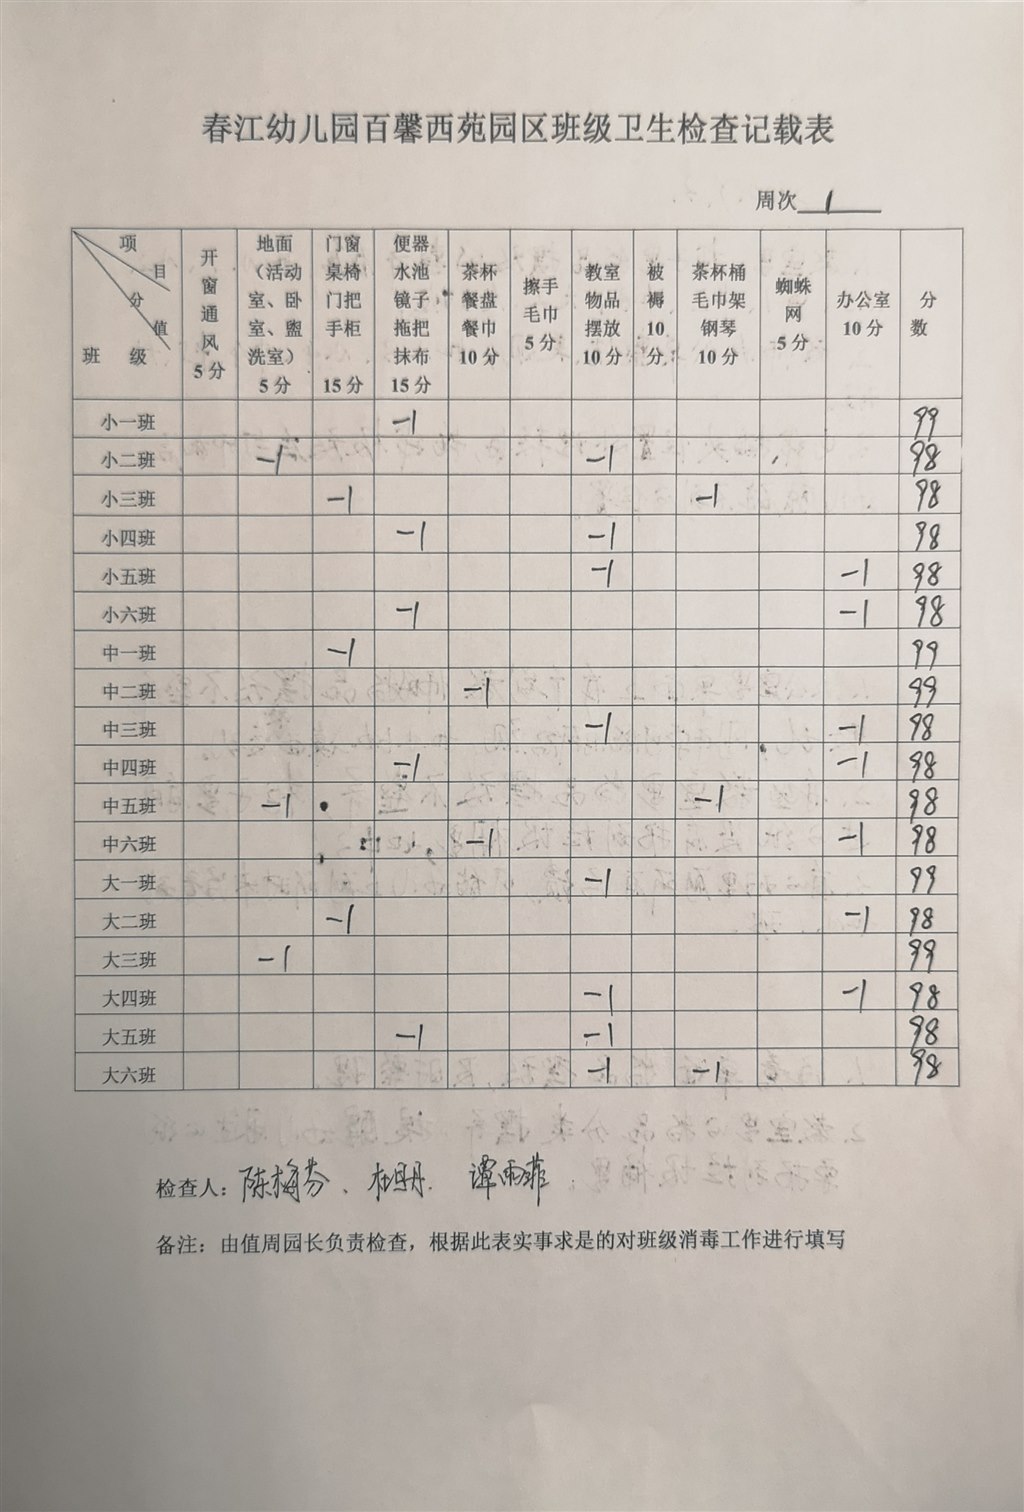 春江幼儿园百馨西苑园区班级卫生检查记载表
周次 1
项目 分值 班级 开窗通风5分 地面（活动室、卧室、盥洗室）5分 门窗桌椅门把手柜15分 便器水池镜子拖把抹布15分 茶杯餐盘餐巾10分 擦手毛巾5分 教室物品摆放10分 被褥10分 茶杯桶毛巾架钢琴10分 蜘蛛网5分 办公室10分 分数
小一班 -1 99
小二班 -1 -1 98
小三班 -1 -1 98
小四班 -1 -1 98
小五班 -1 -1 98
小六班 -1 -1 98
中一班 -1 99
中二班 -1 99
中三班 -1 -1 98
中四班 -1 -1 98
中五班 -1 -1 98
中六班 -1 -1 98
大一班 -1 99
大二班 -1 -1 98
大三班 -1 99
大四班 -1 -1 98
大五班 -1 -1 98
大六班 -1 -1 98
检查人：陈梅芬、杜丹丹、谭雨菲
备注：由值周园长负责检查，根据此表实事求是的对班级消毒工作进行填写